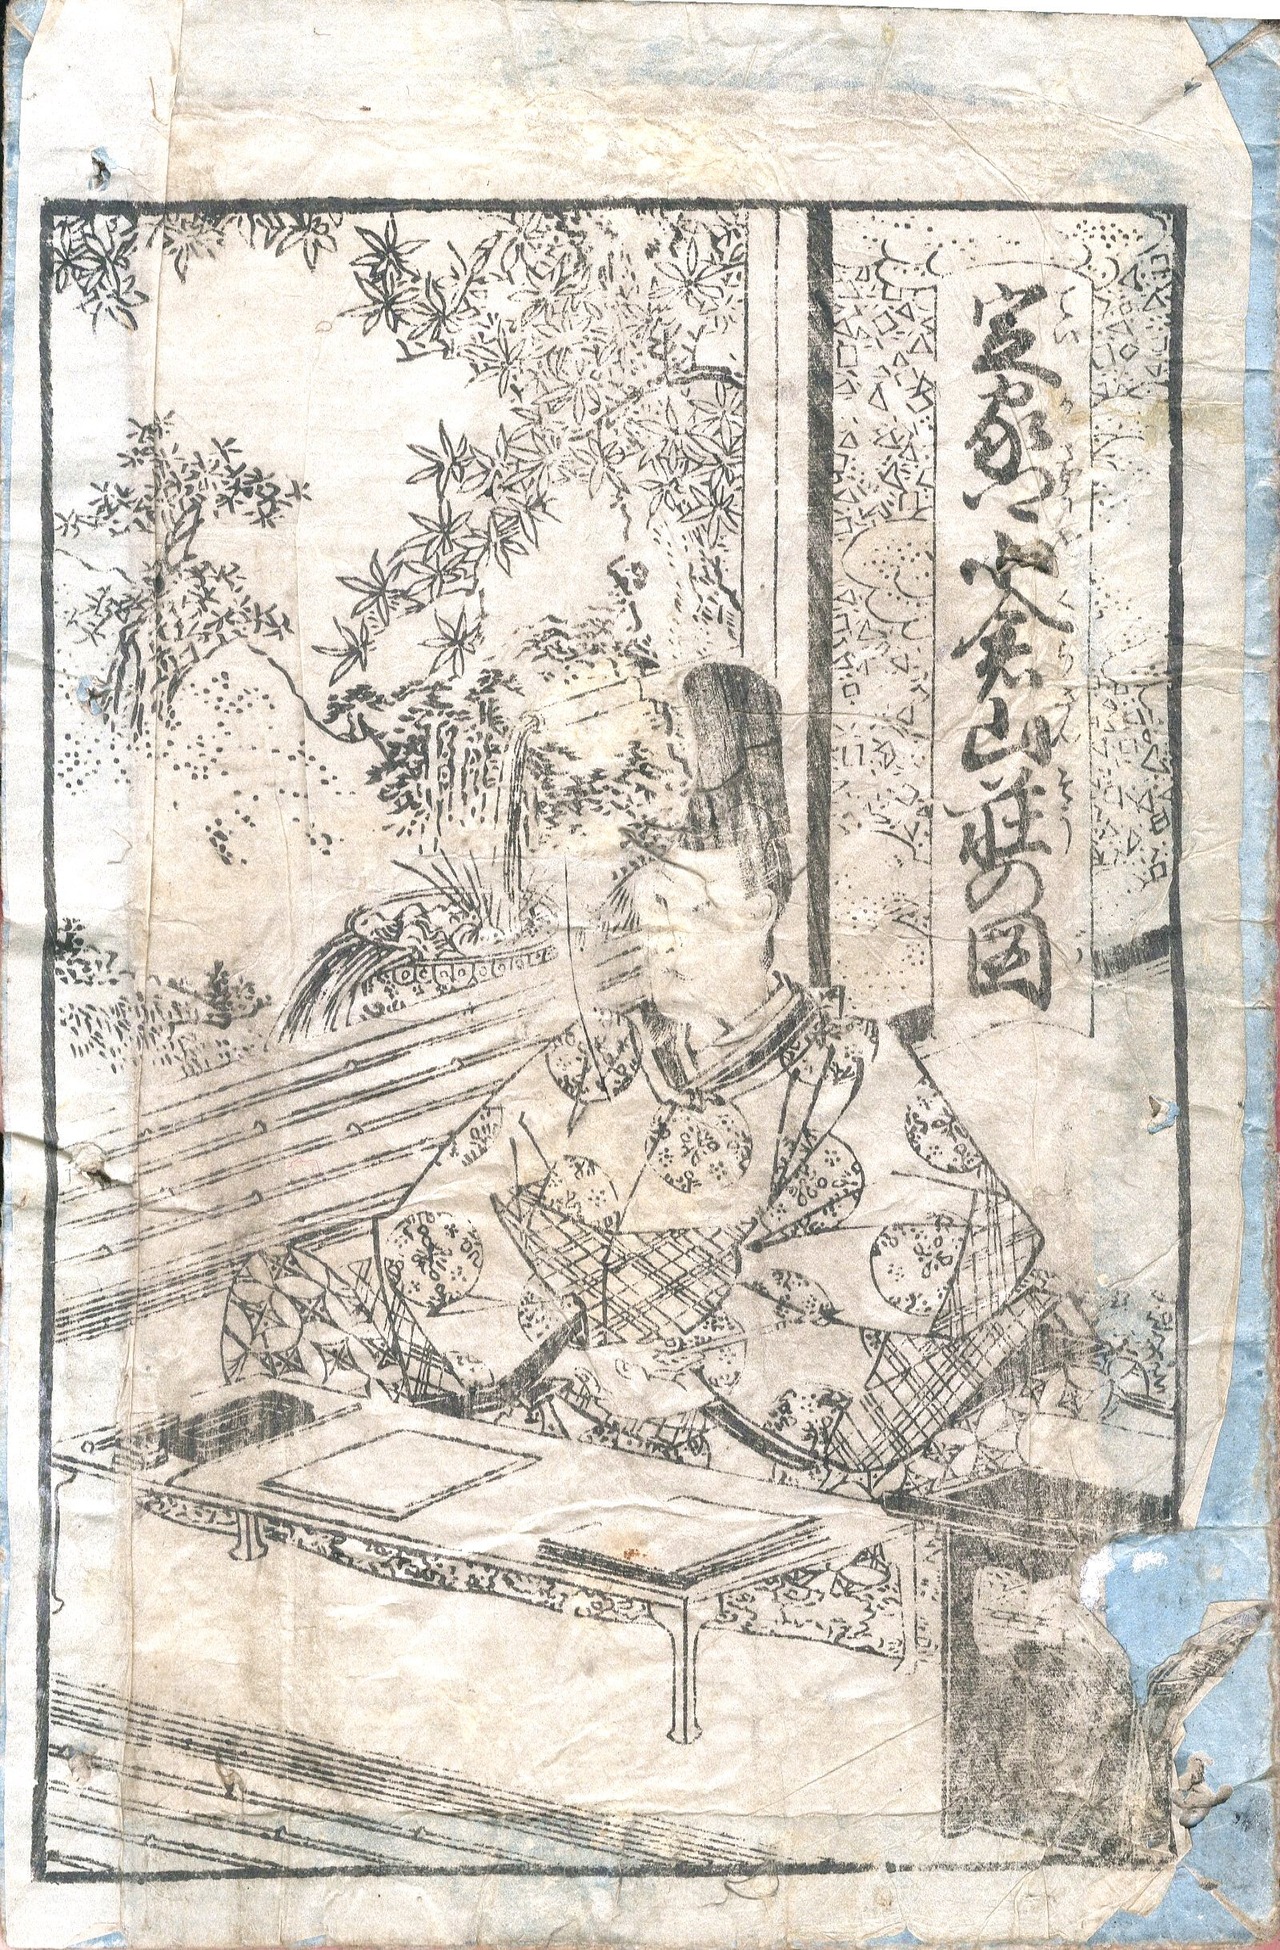 定家卿小倉山荘の図